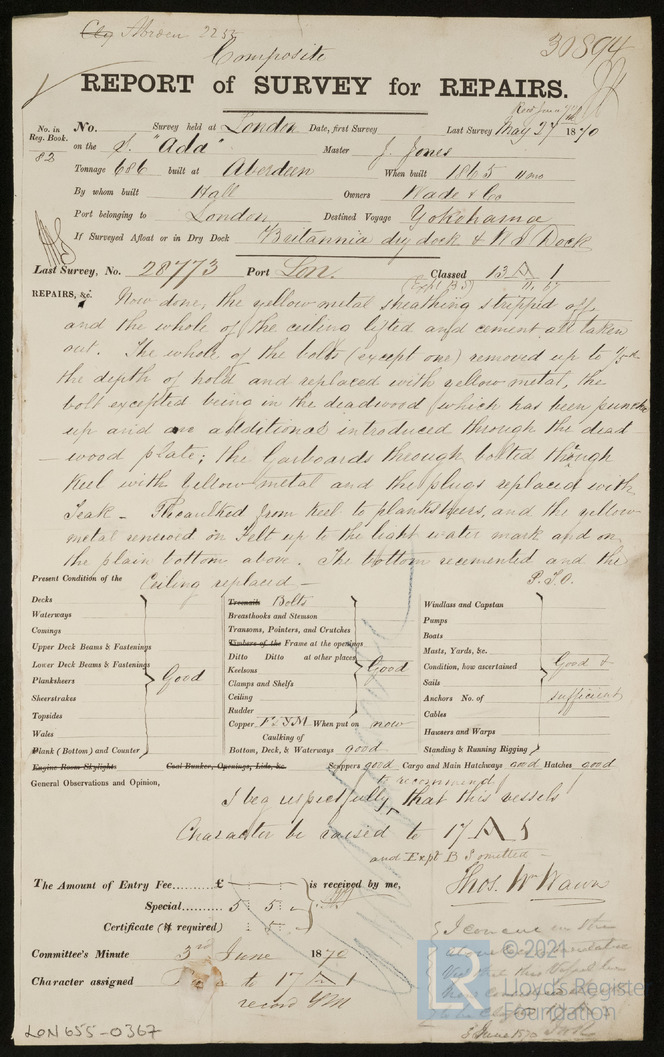 Aberdeen 2252
Composite
30894
REPORT of SURVEY for REPAIRS.
No. in Reg. Book. 82
No. Survey held at London Date, first Survey Last Survey May 27th 1870
on the S. "Ada" Master J. Jones
Tonnage 686 built at Aberdeen When built 1865 11mo
By whom built Hall Owners Wade & Co
Port belonging to London Destined Voyage Yokohama
If Surveyed Afloat or in Dry Dock Britannia dry dock & W I Dock
Last Survey, No. 28773 Port Lon. Classed 13 A 1
(Exptl B S) 11, 67
REPAIRS, &c. Now done, the yellow metal sheathing stripped off,
and the whole of the ceiling lifted and cement all taken
out. The whole of the bolts (except one) removed up to 1/3rd
the depth of hold and replaced with yellow metal, the
bolt excepted being in the deadwood (which has been punched
up and an additional introduced through the dead-
-wood plate; the Garboards through bolted through
Keel with Yellow metal and the plugs replaced with
Teak - Recaulked from keel to planksheers, and the yellow
metal renewed on Felt up to the light water mark and on
the plain bottom above. The bottom recemented and the
Ceiling replaced - P.T.O.
Present Condition of the
Decks
Waterways
Comings
Upper Deck Beams & Fastenings
Lower Deck Beams & Fastenings
Planksheers
Sheerstrakes
Topsides
Wales
Plank (Bottom) and Counter
Good
Treenails Bolts
Breasthooks and Stemson
Transoms, Pointers, and Crutches
Timbers of the Frame at the openings
Ditto Ditto at other places
Keelsons
Clamps and Shelfs
Ceiling
Rudder
Good
Copper F & YM When put on new
Caulking of
Bottom, Deck, & Waterways good
Windlass and Capstan
Pumps
Boats
Masts, Yards, &c.
Condition, how ascertained
Sails
Anchors No. of
Cables
Hausers and Warps
Standing & Running Rigging
Good &
sufficient
Engine Room Skylights Coal Bunker, Openings, Lids, &c. Scuppers good Cargo and Main Hatchways good Hatches good
General Observations and Opinion,
to recommend
I beg respectfully, that this vessels
Character be raised to 17 A 1
and Exptl B S omitted -
The Amount of Entry Fee......... £ is received by me,
Special......... 5 : 5 : -
Certificate (if required) : 5 : -
Thos. W Wawn
Committee's Minute 3rd June 1870
Character assigned to 17 A 1
record YM
I concur in the
3 June 1870
LON 655-0367
LR
© 2021
Lloyd's Register
Foundation